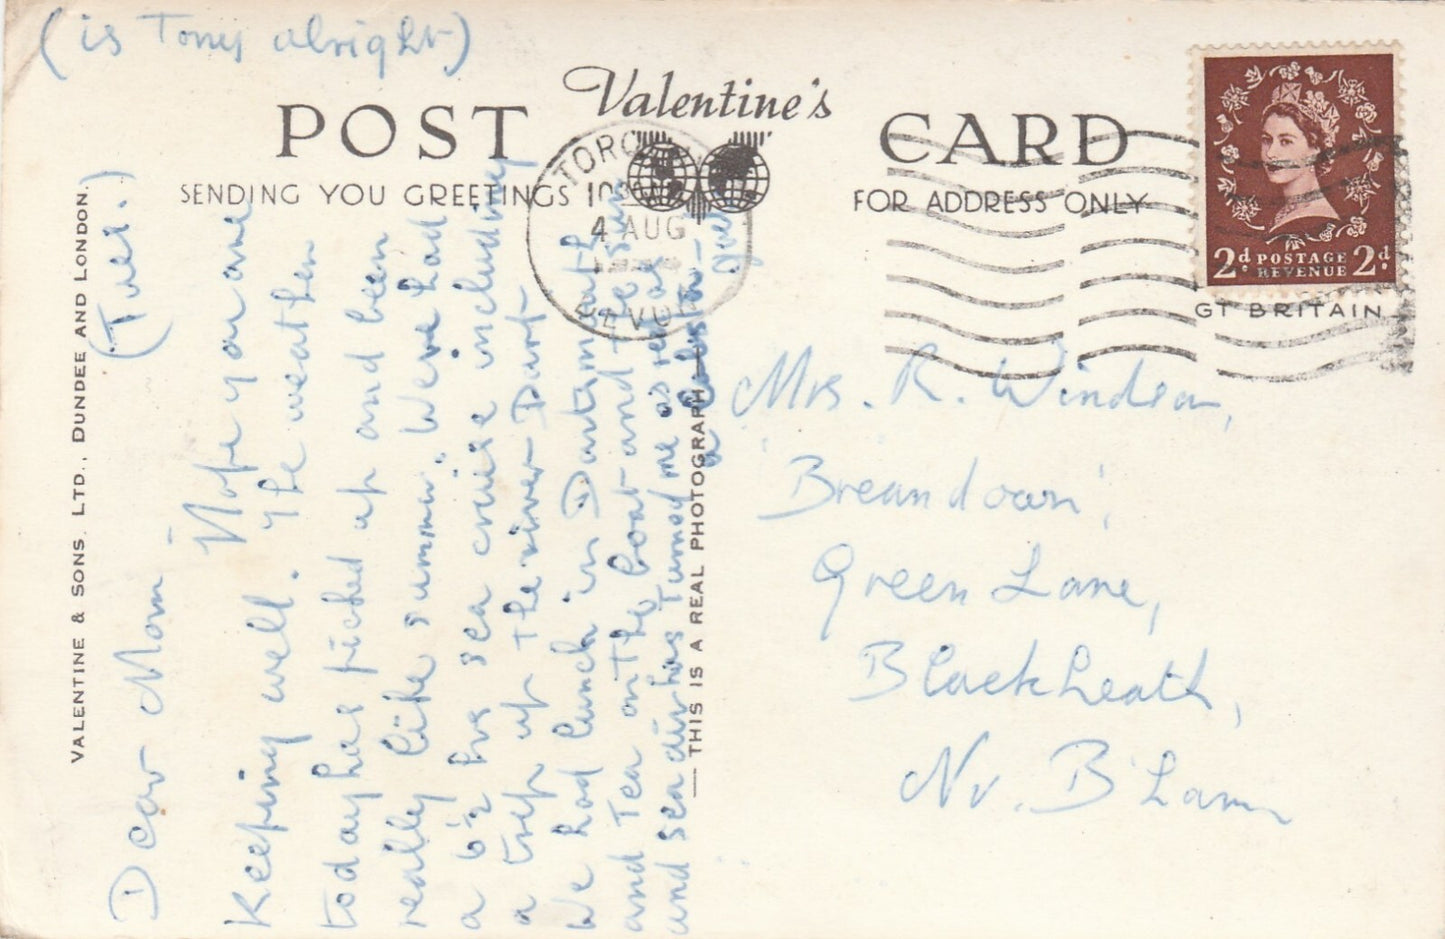 (is Tony alright)
Valentine's
POST CARD
SENDING YOU GREETINGS
FOR ADDRESS ONLY
4 AUG
2d. POSTAGE REVENUE 2d.
GT BRITAIN
VALENTINE & SONS. LTD., DUNDEE AND LONDON.
THIS IS A REAL PHOTOGRAPH
(Tues.)
Dear Mom –
Hope you are
keeping well. The weather
today has picked up and been
really like summer. We've had
a 6½ hrs sea cruise including
a trip up the river Dart
We had lunch in Dartmouth
and Tea on the boat and the sun
and sea air has turned me as red as
a lobster –
Mrs. R. Windsor,
'Breandown',
Green Lane,
Blackheath,
Nr. B'ham